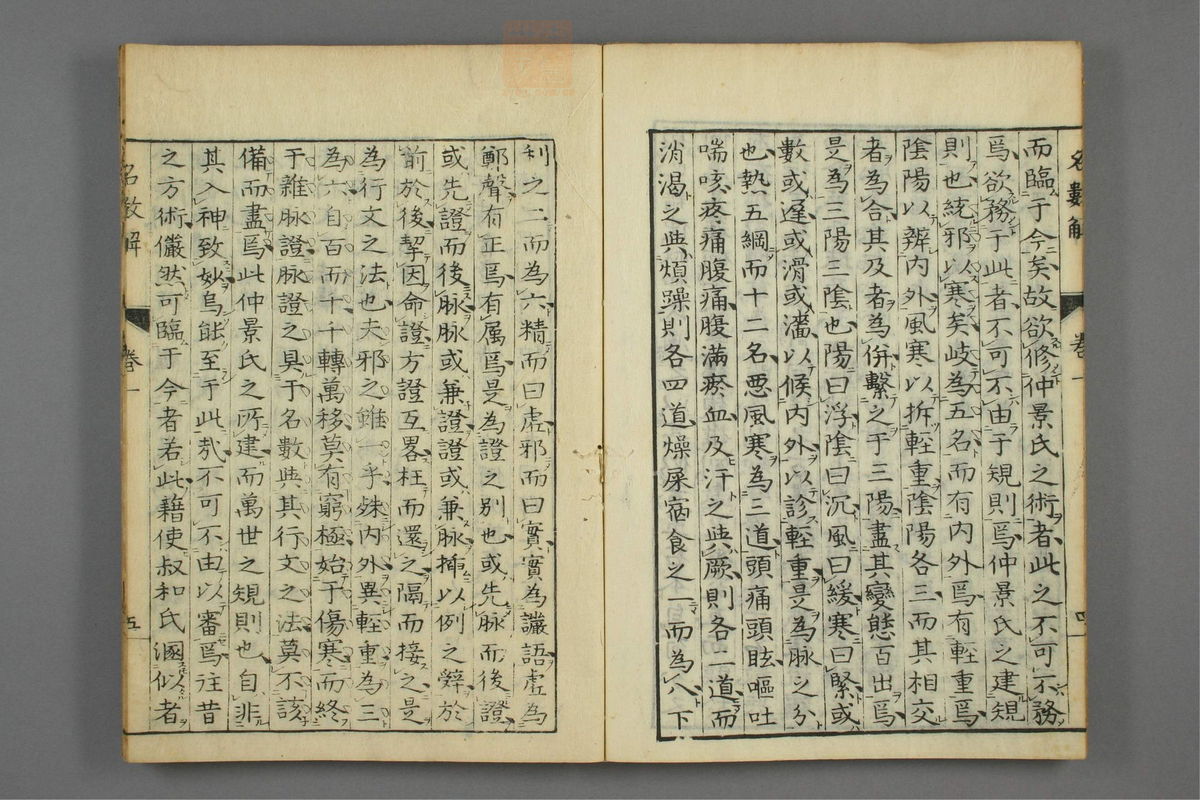 而臨于今矣故欲修仲景氏之術者此之不可不務
焉欲務于此者不可不由于規則焉仲景氏之建規
則也統邪以寒矣岐為五名而有内外焉有輊重焉
陰陽以辨内外風寒以拆輊重陰陽各三而其相交
者為合其及者為併繫之于三陽盡其變態百出焉
是為三陽三陰也陽曰浮陰曰沉風曰緩寒曰緊或
數或遲或滑或濇以候内外以診輊重是為脉之分
也熱五綱而十二名悪風寒為三道頭痛頭眩嘔吐
喘咳疼痛腹痛腹滿瘀血及汗之與厥則各二道而
消渇之與煩躁則各四道燥屎宿食之一而為八下
名數解
卷一
四
利之二而為六精而曰虛邪而曰實實為讝語虛為
鄭聲有正焉有属焉是為證之别也或先脉而後證
或先證而後脉脉或兼證證或兼脉揷以例之辭於
前於後挈因命證方證互畧枉而還之隔而接之是
為行文之法也夫邪之雖一乎殊内外異輊重為三
為六自百而千千轉萬移莫有窮極始于傷寒而終
于雜脉證脉證之具于名數與其行文之法莫不該
備而盡焉此仲景氏之所建而萬世之規則也自非
其入神致妙烏能至于此㢤不可不由以審焉往昔
之方術儼然可臨于今者若此藉使叔和氏溷似者
名數解
卷一
五